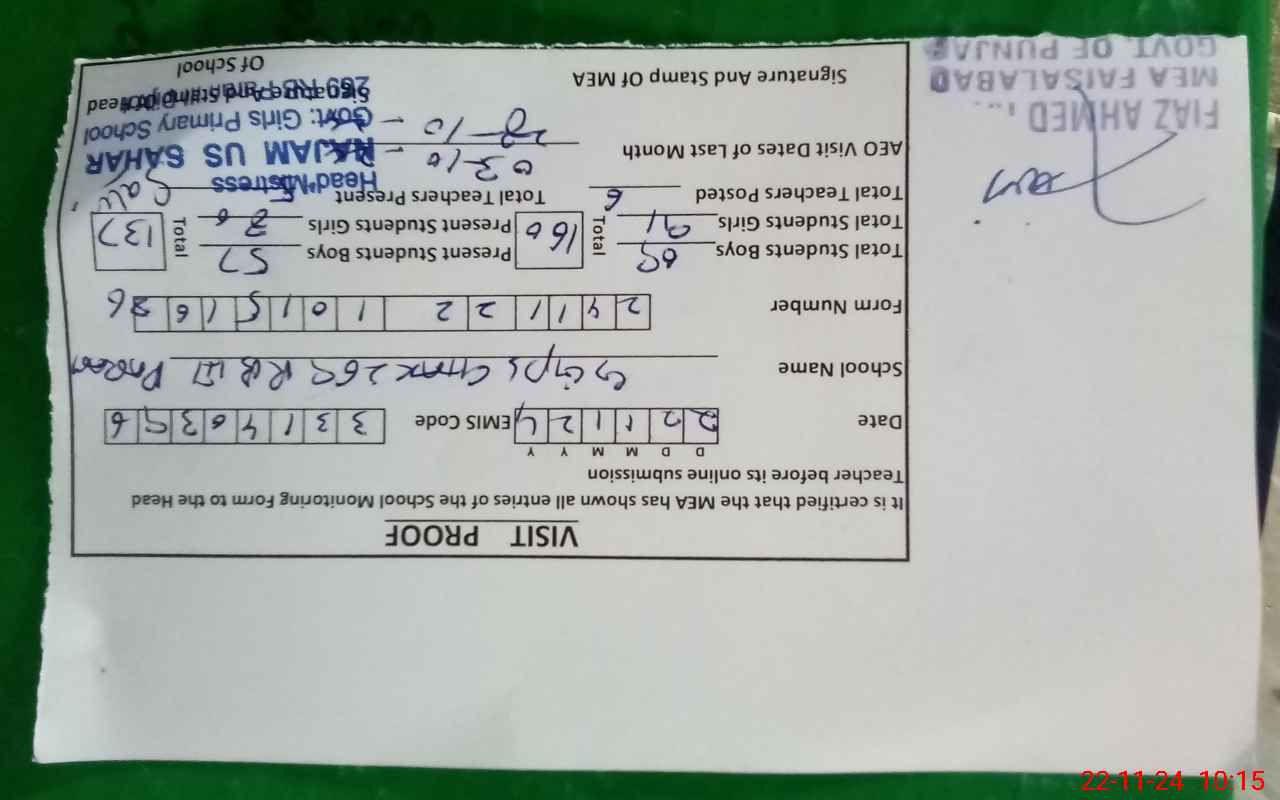 VISIT PROOF
It is certified that the MEA has shown all entries of the School Monitoring Form to the Head
Teacher before its online submission
D D M M Y Y
Date 2 2 1 1 2 4 EMIS Code 3 3 1 4 0 3 9 6
School Name GGPS CHAK 269 RB III
Form Number 2 4 1 1 2 2 2 1 0 1 5 1 6 36
Total Students Boys 69 Total 160 Present Students Boys 57 Total 137
Total Students Girls 91 Present Students Girls 80
Total Teachers Posted 6 Total Teachers Present 5
Head Mistress
AEO Visit Dates of Last Month 03-10-
NAJAM US SAHAR
28-10-
Govt: Girls Primary School
FIAZ AHMED
MEA FAISALABAD
GOVT. OF PUNJAB
Signature And Stamp Of MEA
Signature And Stamp Of Head
269 RB
Of School
22-11-24 10:15